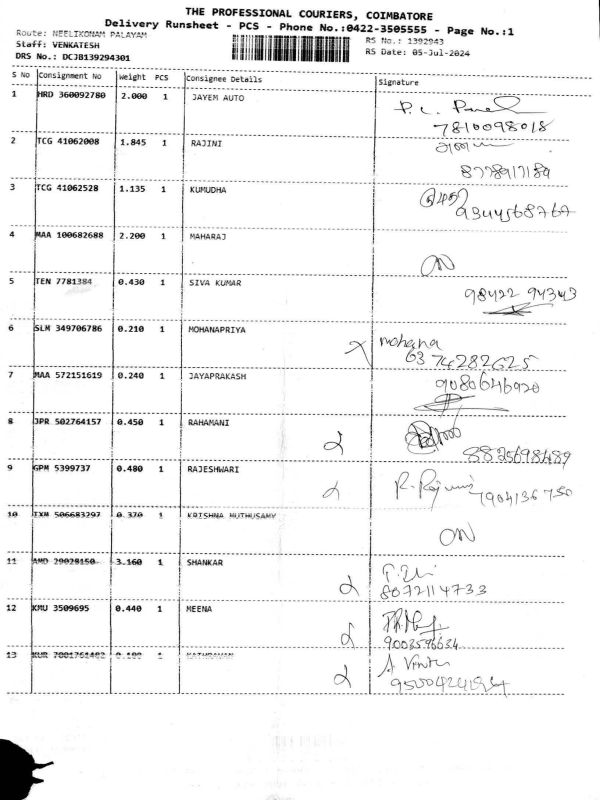 THE PROFESSIONAL COURIERS, COIMBATORE
Delivery Runsheet - PCS - Phone No.:0422-3505555 - Page No.:1
Route: NEELIKONAM PALAYAM RS No.: 1392943
Staff: VENKATESH RS Date: 05-Jul-2024
DRS No.: DCJB139294301
S No Consignment No Weight PCS Consignee Details Signature
1 HRD 360092780 2.000 1 JAYEM AUTO
7810098018
2 TCG 41062008 1.845 1 RAJINI
8778917189
3 TCG 41062528 1.135 1 KUMUDHA
9344568767
4 MAA 100682688 2.200 1 MAHARAJ
ON
5 TEN 7781384 0.430 1 SIVA KUMAR
98422 94343
6 SLM 349706786 0.210 1 MOHANAPRIYA mohana
6374282625
7 MAA 572151619 0.240 1 JAYAPRAKASH 9080646920
8 JPR 502764157 0.450 1 RAHAMANI
8825698489
9 GPM 5399737 0.480 1 RAJESHWARI
7904136750
10 IXM 506683297 0.370 1 KRISHNA MUTHUSAMY
ON
11 AMD 29028150 3.160 1 SHANKAR
8072114733
12 KMU 3509695 0.440 1 MEENA
9003596634
13 KUR 7001761402 0.100 1